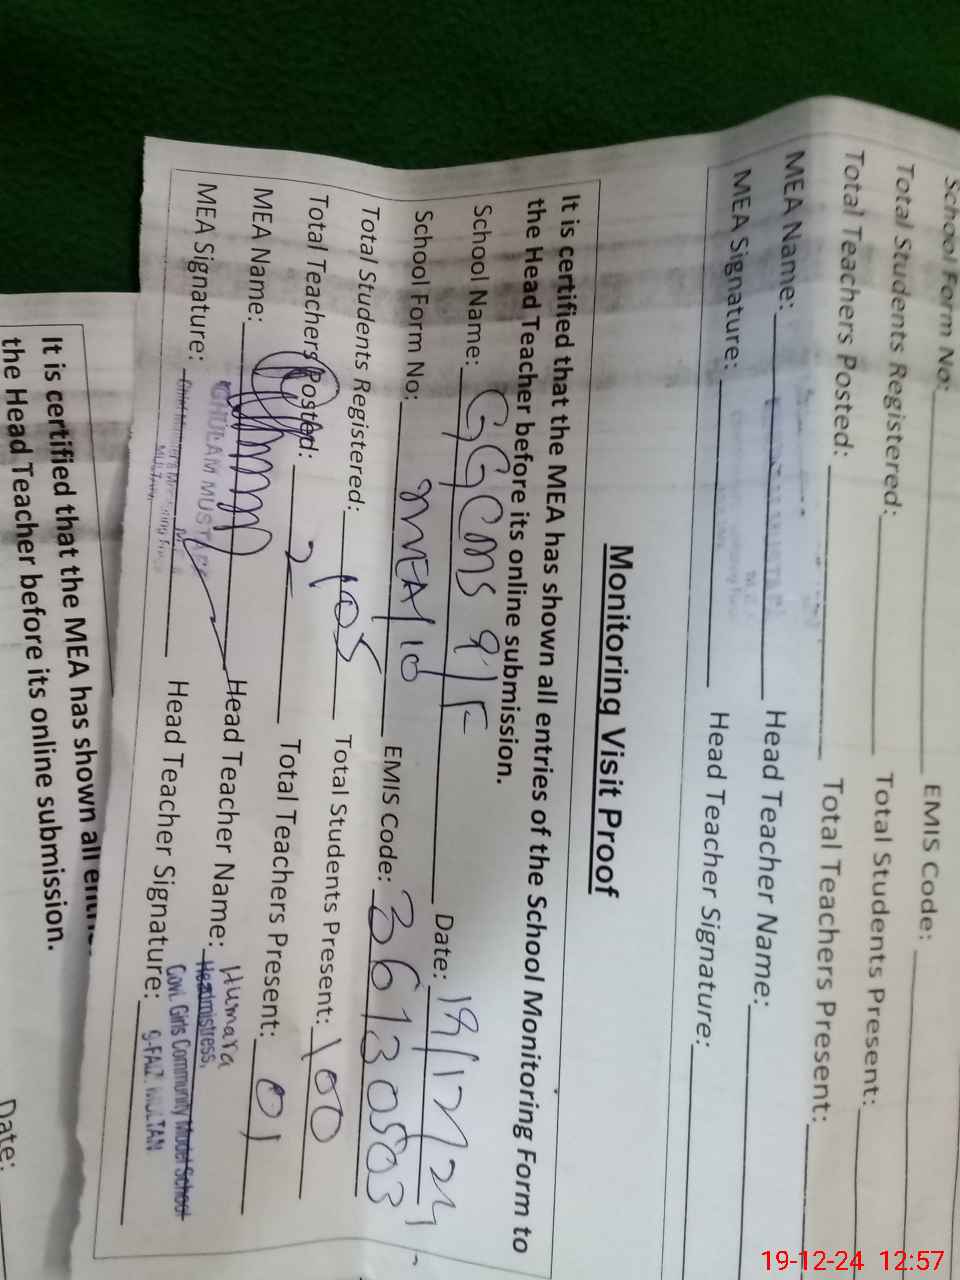 School Form No: EMIS Code:
Total Students Registered: Total Students Present:
Total Teachers Posted: Total Teachers Present:
MEA Name: Head Teacher Name:
MEA Signature: Head Teacher Signature:
Monitoring Visit Proof
It is certified that the MEA has shown all entries of the School Monitoring Form to
the Head Teacher before its online submission.
School Name: GGCMS 9/F Date: 19/12/24
School Form No: EMIS Code: 36130503
Total Students Registered: 105 Total Students Present: 100
Total Teachers Posted: 2 Total Teachers Present: 01
MEA Name: Head Teacher Name: Humara
Headmistress,
MEA Signature: GHULAM MUSTAFA Head Teacher Signature: Govt. Girls Community Model School
9-FAIZ. MULTAN
It is certified that the MEA has shown all
the Head Teacher before its online submission.
Date:
19-12-24 12:57